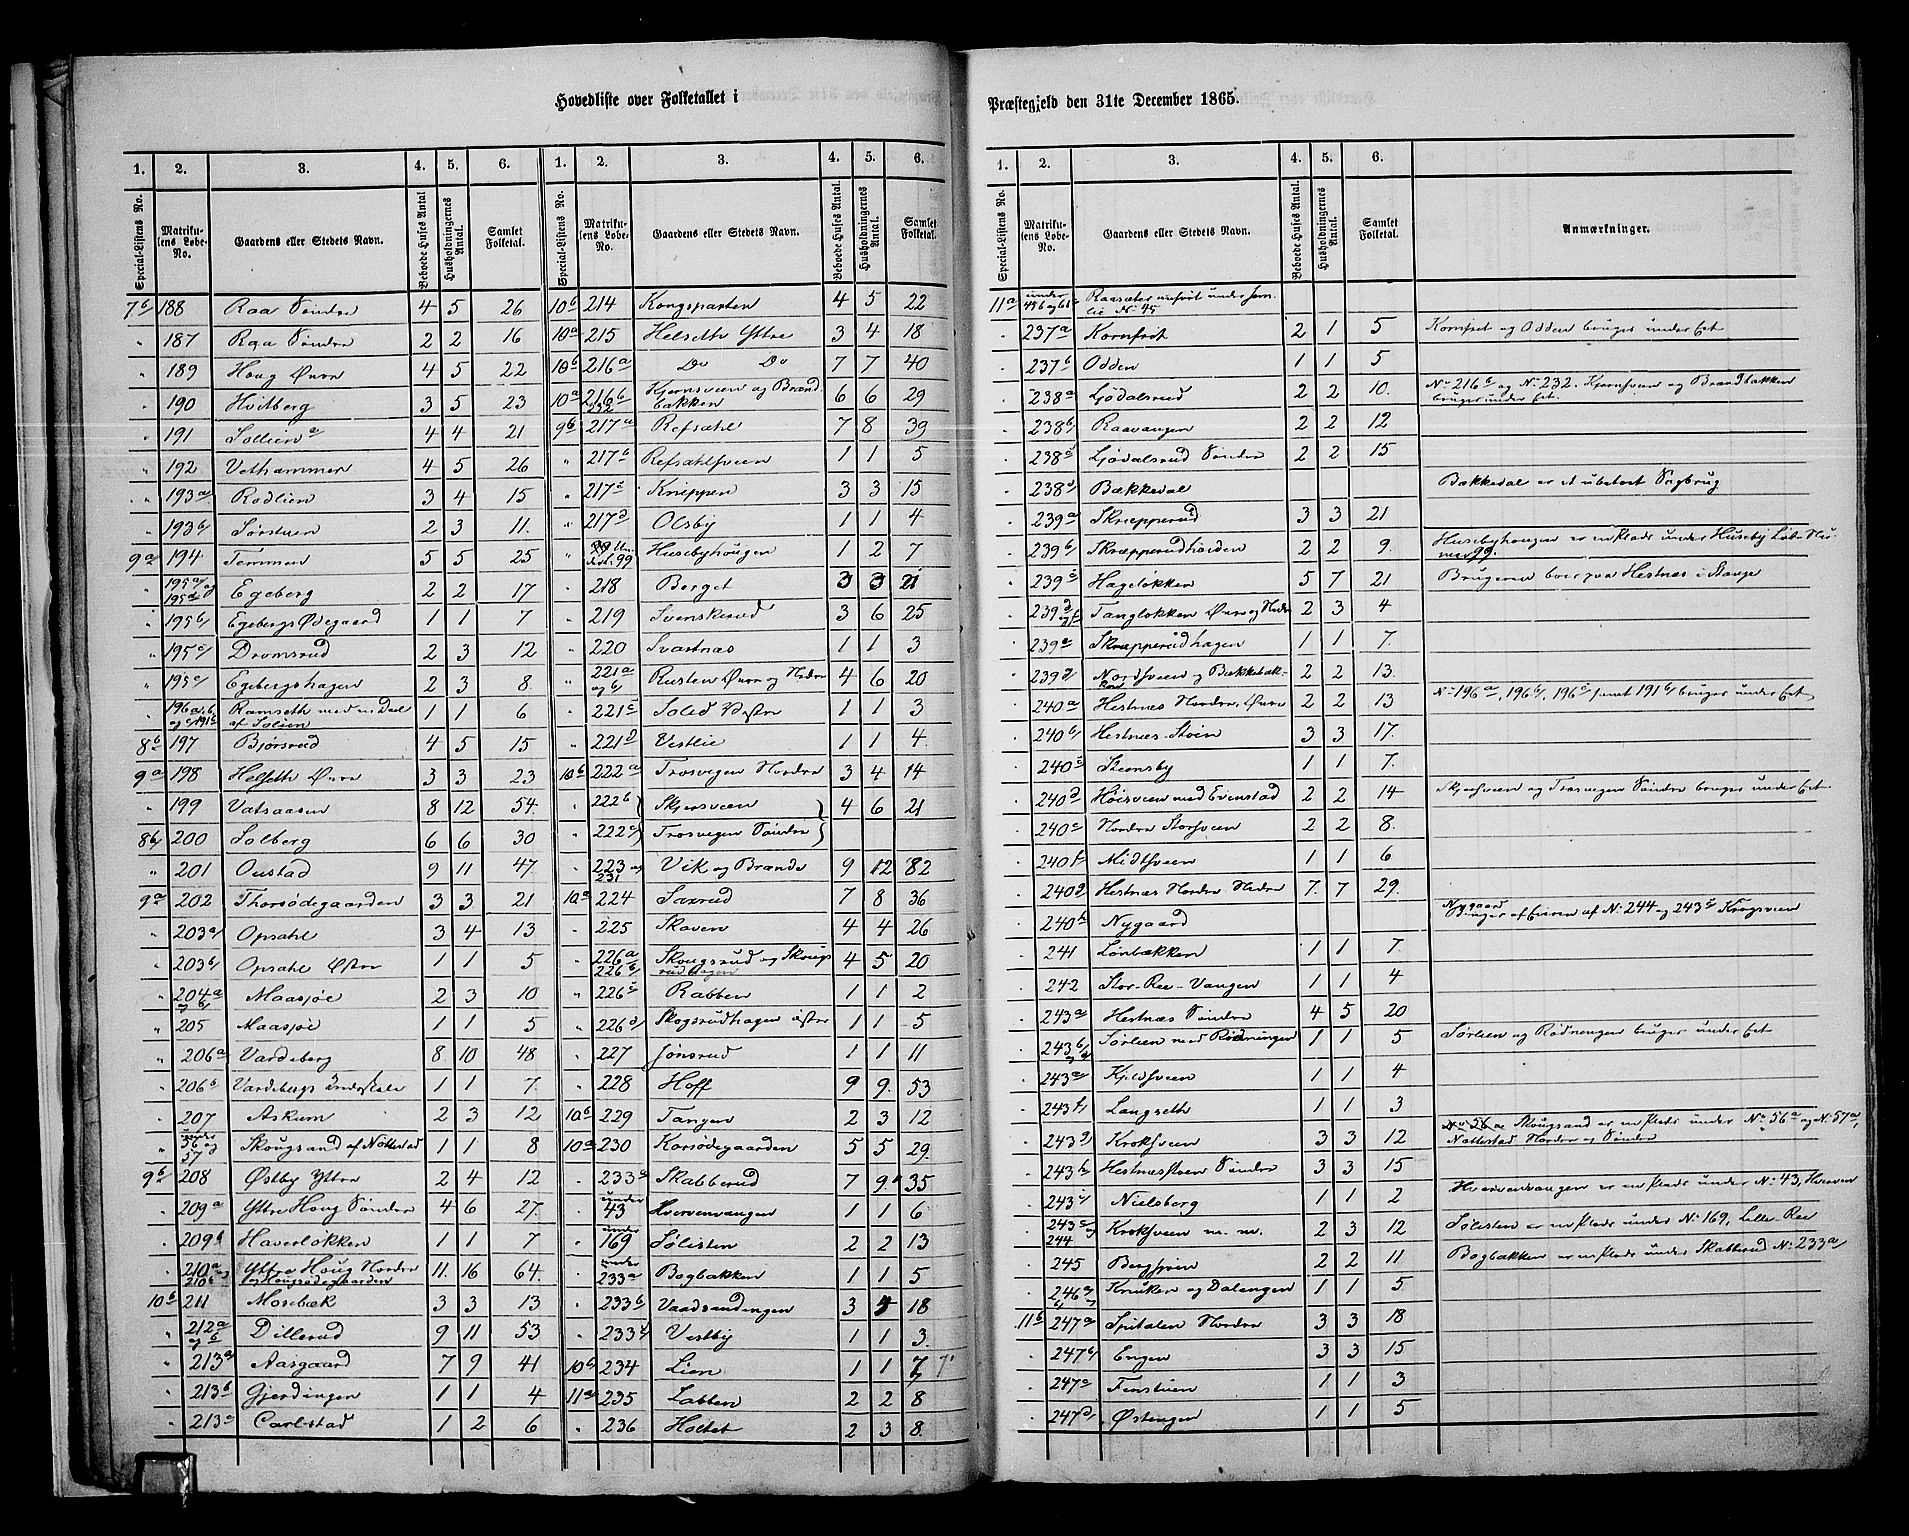 Hovedliste over Folketallet i
Præstegjeld den 31te December 1865.
1. 2. 3. 4. 5. 6. 1. 2. 3. 4. 5. 6.
Special-Listens No. Matrikulens Løbe-No. Gaardens eller Stedets Navn. Beboede Huses Antal Husholdningernes Antal. Samlet Folketal. Special-Listens No. Matrikulens Løbe-No. Gaardens eller Stedets Navn. Beboede Huses Antal. Husholdningernes Antal. Samlet Folketal.
7b 188 Raa Søndre 4 5 26
" 187 Raa Søndre 2 2 16
" 189 Houg Øvre 4 5 22
" 190 Hvitberg 3 5 23
" 191 Sollien a 4 4 21
" 192 Vethammer 4 5 26
" 193a Rødlien 3 4 15
" 193b Sørstuen 2 3 11.
9a 194 Tommen 5 5 25
" 195a og 195d Egeberg 2 2 17
" 195b Egebergs Ødegaard 1 1 7
" 195c Dromsrud 2 3 12
" 195e Egebergshagen 2 3 8.
" 196a.b og c, 191b Ramseth med en Deel af Solien 1 1 6
8b 197 Bjørsrud 4 5 15
9a 198 Helseth Øvre 3 3 23
" 199 Vatsaasen 8 12 54.
8b 200 Solberg 6 6 30
" 201 Oustad 9 11 47.
9a 202 Thorsødegaarden 3 3 21
" 203a Opsahl 3 4 13
" 203b Opsahl Østre 1 1 5
" 204a og b Maasjøe 2 3 10
" 205 Maasjøe 1 1 5
" 206a Vardeberg 8. 10 48
" 206b Vardebergs 1 1 7.
" 207 Askum 2 3 12
" under 56 og 57 Skougsand af Nøttestad 1 1 8
9b 208 Østby Yttre 2 4 12
" 209a Yttre Houg Søndre 4 6 27.
" 209b Haverløkken 1 1 7
" 210a og 210b Yttre Houg Nordre og Hougsødegaarden 11. 16 64.
10b 211 Mosebæk 3 3 13
" 212a og b Dillerud 9 11 53
" 213a Aasgaard 7 9 41
" 213b Gjerdingen 1 1 4
" 213c Carlstad 1 2 6
10b 214 Kongsparten 4 5 22
10a 215 Helseth Yttre 3 4 18
10b 216a Do Do 7 7 40
10a 216b 232 Kjernsveen og Brændbakken 6 6 29
9b 217a Refsahl 7 8 39
" 217b Refsahlsveen 1 1 5
" 217c Knippen 3 3 15
" 217d Olsby 1 1 4
" 99 Husebyhougen 1 2 7
218 Berget 3 3 21
" 219 Svenskerud 3 6 25
" 220 Svartnæs 1 1 3
" 221a og b Rusten Øvre og Nedre 4 6 20
" 221c Soled Vestre 1 1 3
" 221d Vestlie 1 1 4.
10b 222a Trosvigen Nordre 3 4 14
" 222b Skjersveen 4 6 21
" 222c Trosvigen Søndre
" 223 og 231 Vik og Brænde 9 12 82
10a 224 Saxrud 7 8 36
" 225 Skoven 4 4 26
" 226a 226b Skougsrud og Skougsrudhagen 4 5 20
" 226c Rabben 1 1 2
" 226d Skogsrudhagen østre 1 1 5
" 227 Jønsrud 1 1 11
" 228 Hoff 9 9. 53
10b 229 Tangen 2 3 12
10a 230 Korsødegaarden 5 5 29.
" 233a Skabberud 7 9. 35
" under 43 Hvervenvangen 1 1 6
" under 169 Sølisten 2 2 13
" under 233a Bogbakken 1 1 5
" 233b Vaadsandengen 3 4 18
" 233c Vestby 1 1 3.
10b 234 Lien 1 1 7 7
11a 235 Labben 2 2 8
" 236 Holtet 2 3 8.
1. 2. 3. 4. 5. 6.
Special-Listens No. Matrikulens Løbe-No. Gaardens eller Stedets Navn. Beboede Huses Antal. Husholdningernes Antal. Samlet Folketal Anmærkninger.
11a under 45 b og 61 Raasæter anført under No 45
237a Kornfrøt 2 1 5 Kornfrøt og Odden bruges under Eet
237b Odden 1 1 5
238a Ljødalsrud 2 2 10. No 216b og No 232. Kjernsveen og Brændbakken bruges under Eet.
238b Raavangen 2 2 12
238c Ljødalsrud Søndre 2 2 15
238d Bækkedal Bækkedal er et ubeboet Sagbrug
239a Skræpperud 3 3 21
239b Skræpperudhøiden 2 2 9. Husebyhougen er en Plads under Huseby Løb-Numer 99.
239c Hageløkken 5 7 21 Brugeren boer paa Hestnæs i Stange
239d og f Tangløkken Øvre og Nedre 2 3 4
239e Skræpperudhagen 1 1 7.
239g Nordsveen og Bækkebakken 2 2 13.
240a Hestnæs Nordre, Øvre 2 2 13 No 196a, 196b, 196c samt 191b bruges under Eet
240b Hestnæs-Støen 3 3 17.
240c Steensby 1 1 7.
240d Høisveen med Evenstad 2 2 14 Skjersveen og Trosvigen Søndre bruges under Eet.
240e Nordre Storsveen 2 2 8.
240f Midtsveen 1 1 6
240g Hestnæs Nordre Nedre 7. 7 29.
240h Nygaard Nygaard Bruges af Eieren af No 244 og 243c Krogsveen
241 Lønbækken 1 1 7.
242 Stor-Ree-Vangen 1 1 4
243a Hestnæs Søndre 4 5 20
243b og d Sørlien med Rødningen 1 1 5 Sørlien og Rødningen bruges under Eet
243e Kjeldsveen 1 1 4
243f Langseth 1 1 3
243g Kroksveen 3 3 12 Skougsand er en Plads under No 56a og No 57a, Nøttestad Nordre og Søndre
243h Hestnæsveen Søndre 3 3 15
243i Nielsberg 1 1 2 Hvervenvangen er en Plads under No 43, Hverven
243c og 244 Kroksveen m. m. 2 3 12 Sølisten er en Plads under No 169, Lille-Ree
245 Bergsveen 2 2 11 Bogbakken er en Plads under Skabberud No 233a
246a og b Kruken og Dalengen 1 1 5.
11b 247a Spitalen Nordre 3 3 18
247b Engen 3 3 15
247c Fenstuen 1 1 3
247d Østengen 1 1 5